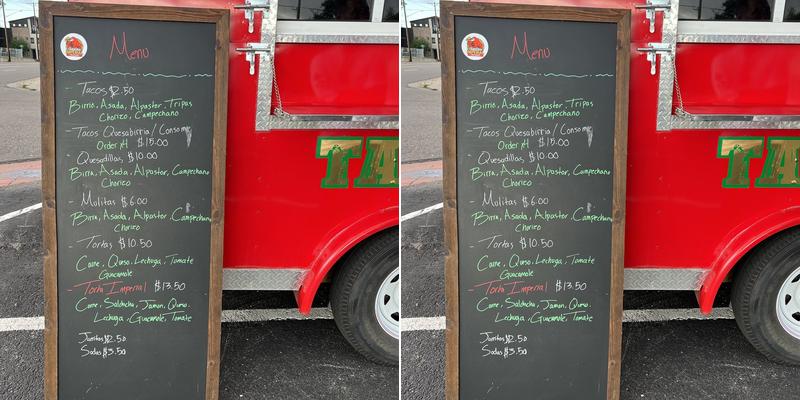 Menu
- Tacos $2.50
Birria, Asada, Alpastor, Tripas
Chorizo, Campechano
- Tacos Quesabirria / Consome
Order #4 $15.00
- Quesadillas, $10.00
Birra, Asada, Alpastor, Campechano
Chorico
- Mulitas $6.00
Birra, Asada, Alpastor, Campechano
Chorico
- Tortas $10.50
Carne, Queso, Lechuga, Tomate
Guacamole
- Torta Imperial $13.50
Carne, Salchicha, Jamon, Queso,
Lechuga, Guacamole, Tomate
Sodas $3.50
TA
Menu
- Tacos $2.50
Birria, Asada, Alpastor, Tripas
Chorizo, Campechano
- Tacos Quesabirria / Consome
Order #4 $15.00
- Quesadillas, $10.00
Birra, Asada, Alpastor, Campechano
Chorico
- Mulitas $6.00
Birra, Asada, Alpastor, Campechano
Chorico
- Tortas $10.50
Carne, Queso, Lechuga, Tomate
Guacamole
- Torta Imperial $13.50
Carne, Salchicha, Jamon, Queso,
Lechuga, Guacamole, Tomate
Sodas $3.50
TA